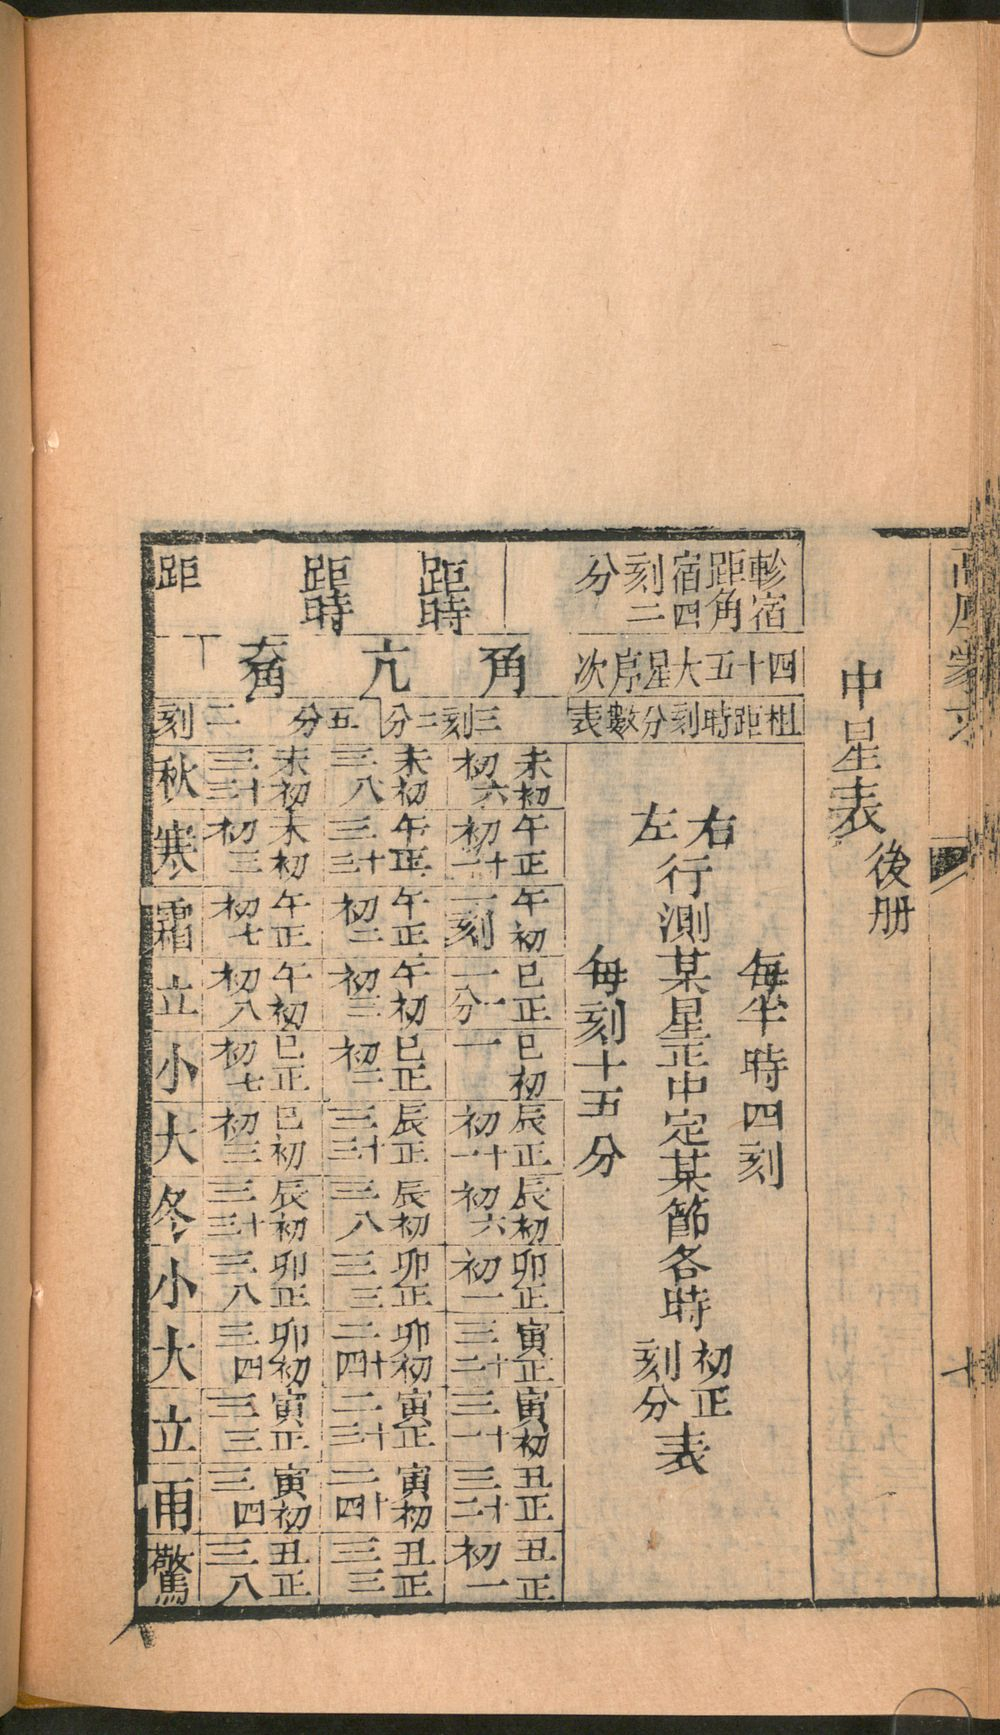 高厚蒙求
十
中星表後册
軫宿距角宿四刻二分
四十五大星序次
相距時刻分數表
每半時四刻
右左行測某星正中定某節各時初正刻分表
每刻十五分
距時
角
三刻二分
未初初六
午正初十一
午初一刻
巳正一一分
巳初一
辰正初十一
辰初初六
卯正初一
寅正三十二
寅初三十一
丑正三十二
丑正初一
距時
亢
五分
未初三八
午正三十三
午正初二
午初初三
巳正初二
辰正三十三
辰初三八
卯正三三
卯初二十四
寅正二十三
寅初二十四
丑正三三
距
大角
二刻
未初三十三
未初初三
午正初七
午初初八
巳正初七
巳初初三
辰初三十三
卯正三八
卯初三四
寅正三三
寅初三四
丑正三八
秋
寒
霜
立
小
大
冬
小
大
立
雨
驚